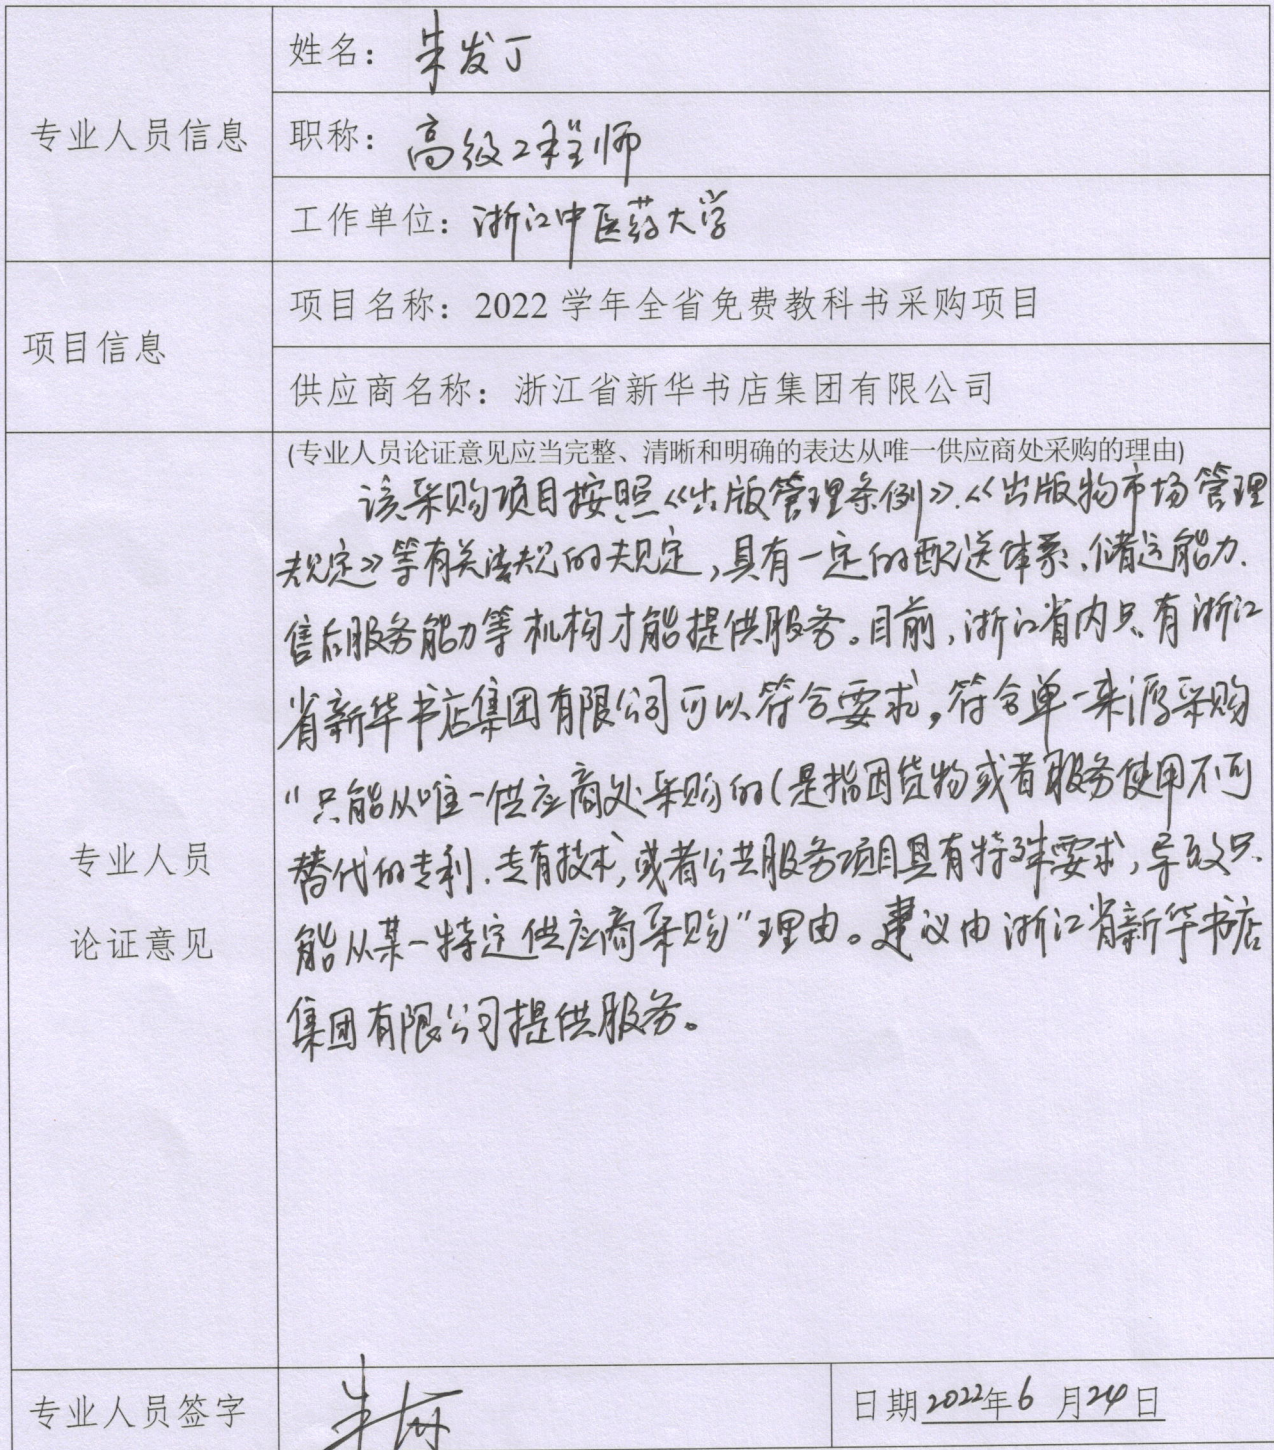 专业人员信息
姓名：朱发丁
职称：高级工程师
工作单位：浙江中医药大学
项目信息
项目名称：2022 学年全省免费教科书采购项目
供应商名称：浙江省新华书店集团有限公司
专业人员
论证意见
(专业人员论证意见应当完整、清晰和明确的表达从唯一供应商处采购的理由)
该采购项目按照《出版管理条例》、《出版物市场管理
规定》等有关法规的规定，具有一定的配送体系、储运能力、
售后服务能力等机构才能提供服务。目前，浙江省内只有浙江
省新华书店集团有限公司可以符合要求，符合单一来源采购
“只能从唯一供应商处采购的（是指因货物或者服务使用不可
替代的专利、专有技术，或者公共服务项目具有特殊要求，导致只
能从某一特定供应商采购”理由。建议由浙江省新华书店
集团有限公司提供服务。
专业人员签字
日期2022年6月24日